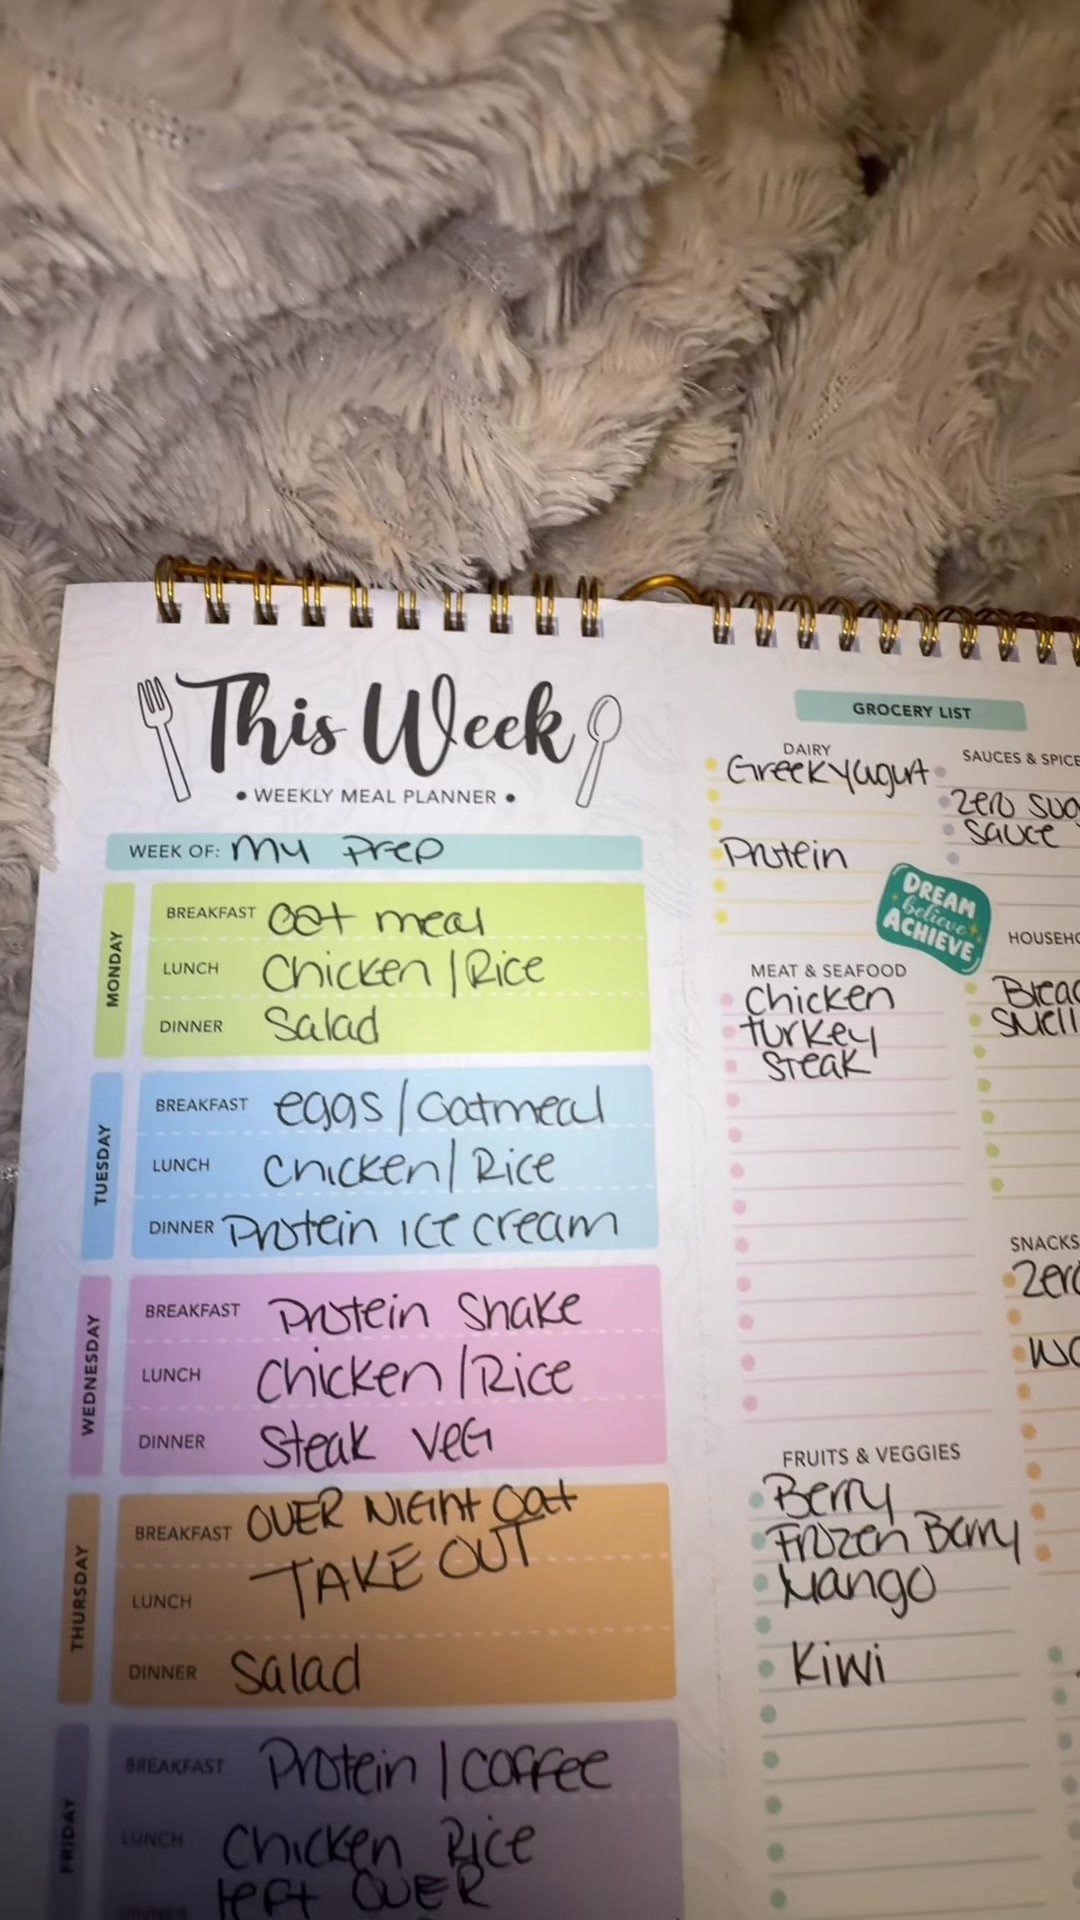 This Week
• WEEKLY MEAL PLANNER •
WEEK OF: My Prep
MONDAY
BREAKFAST Oat meal
LUNCH Chicken / Rice
DINNER Salad
TUESDAY
BREAKFAST eggs / Oatmeal
LUNCH Chicken / Rice
DINNER Protein ice cream
WEDNESDAY
BREAKFAST Protein Shake
LUNCH Chicken / Rice
DINNER Steak VEG
THURSDAY
BREAKFAST OVER NIGHT Oat
LUNCH TAKE OUT
DINNER Salad
FRIDAY
BREAKFAST Protein / coffee
LUNCH Chicken Rice
DINNER left OVER
GROCERY LIST
DAIRY
Greek Yogurt
Protein
SAUCES & SPICE
Zero
sauce
DREAM
believe
ACHIEVE
MEAT & SEAFOOD
Chicken
turkey
Steak
SNACKS
FRUITS & VEGGIES
Berry
Frozen Berry
Mango
Kiwi